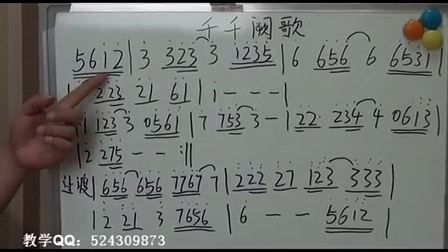 千千阙歌
5612 | 3 323 3 1235 | 6 656 6 6531 |
223 21 61 | 1 - - - |
1 123 3 0561 | 7 753 3 - | 22 234 4 0613
| 2 275 - - :||
过渡 | 656 656 7767 7 | 222 27 123 333 |
| 2 21 3 7656 | 6 - - 5612 |
教学QQ：524309873